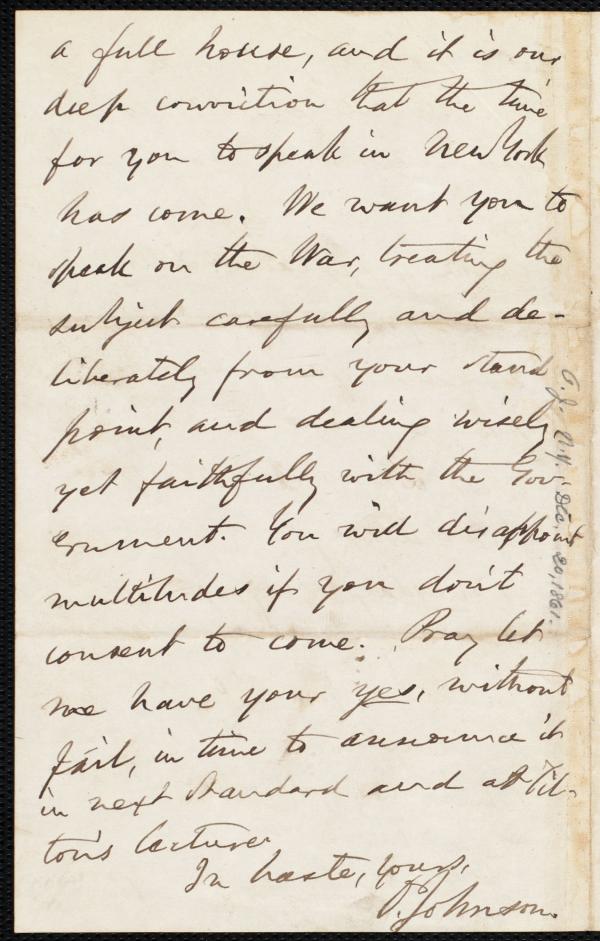 a full house, and it is our
deep conviction that the time
for you to speak in New York
has come. We want you to
speak on the War, treating the
subject carefully and de-
liberately from your stand
point, and dealing wisely
yet faithfully with the Gov-
ernment. You will disappoint
multitudes if you don't
consent to come. Pray let
me have your yes, without
fail, in time to announce it
in next Standard and at Til-
ton's lecture.
In haste, yours,
O. Johnson.
O. J. N.Y. Dec. 20, 1861.